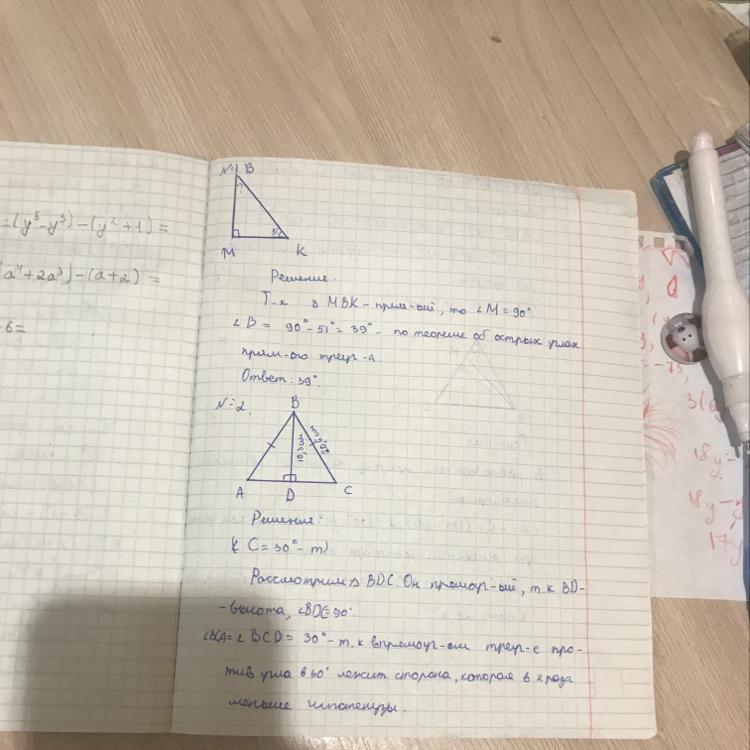 =(y⁵-y³)-(y²+1)=
a⁴+2a³)-(a+2)=
6=
№1 B
?
51°
M K
Решение.
Т.к Δ MBK-прям-ый, то ∠M=90°.
∠B = 90°-51°=39°- по теореме об острых углах
прям-ого треуг-а.
Ответ: 39°.
№2. B
A D C
Решение:
C=30°-т)
Рассмотрим Δ BDC. Он прямоуг-ый, т.к BD-
-высота, ∠BDC=90°.
∠BCA=∠BCD= 30°-т.к в прямоуг-ом треуг-е про-
тив угла в 30° лежит сторона, которая в 2 раза
меньше гипотенузы.
3(6
18y-
18y-
17y